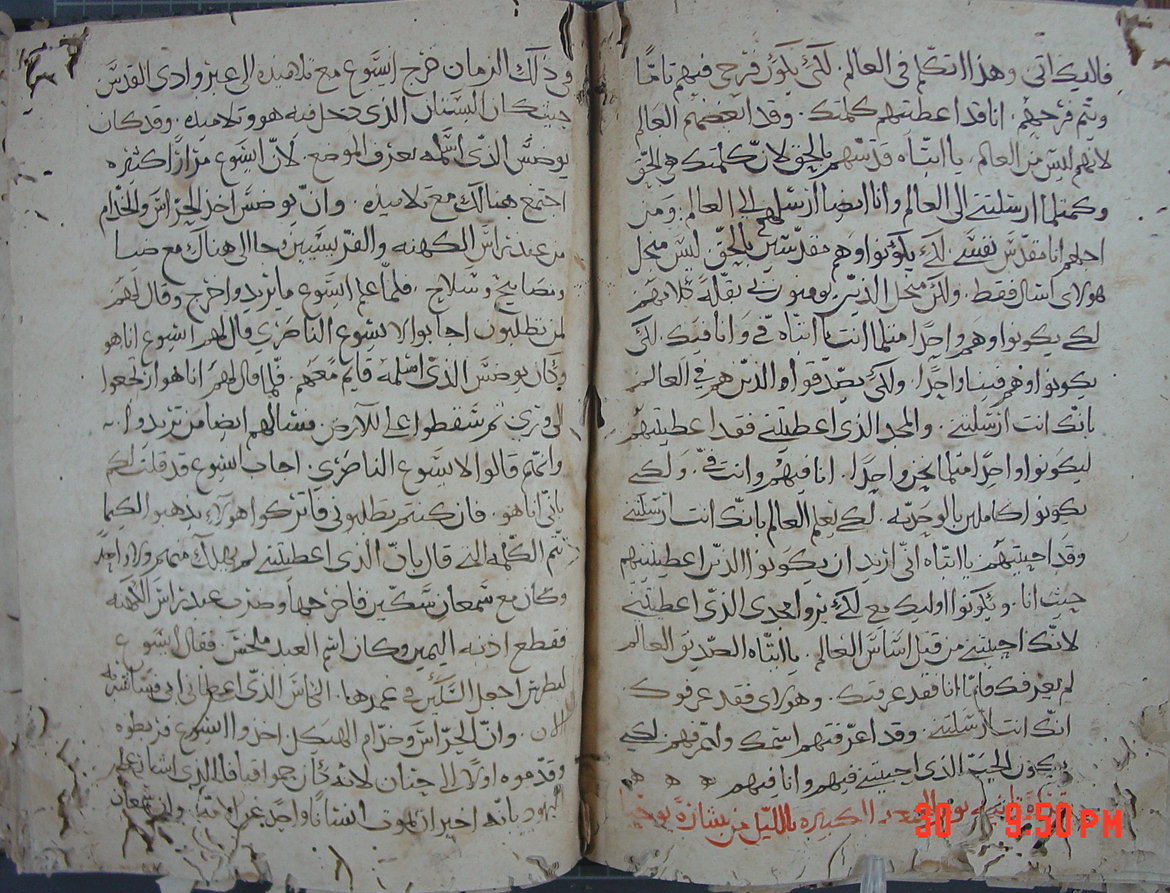 فاليك اتي وهذا اتكلم في العالم. لكي يكون فرحي فيهم تامًا
ويتم فرحهم. انا قد اعطيتهم كلمتك. وقد ابغضهم العالم
لانهم ليس من العالم. يا ابتاه قدسهم بالحق لان كلمتك هي الحق
وكمثلما ارسلتني الى العالم وانا ايضا ارسلهم الى العالم. ومن
اجلهم انا مقدس نفسي لكي يكونوا وهم مقدسين بالحق ليس من اجل
هولاي اسال فقط. ولكن من اجل الذين يومنون بي نقلة كلامهم
لكي يكونوا وهم واحدا مثلما انت يا ابتاه فيّ وانا فيك. لكي
يكونوا وهم فينا واحدا. ولكي يصدقوا والذين هم في العالم
بانك انت ارسلتني. والمجد الذي اعطيتني فقد اعطيتهم
ليكونوا واحدا مثلما نحن واحدا. انا فيهم وانت فيّ. ولكي
يكونوا كاملين بالوحديه. لكي يعلم العالم بانك انت ارسلتني
وقد احببتهم يا ابتاه انّي اريد ان يكونوا الذين اعطيتنيهم
حيث انا. ويكونوا اوليك مع لكي يروا مجدي الذي اعطيتني
لانك احببتني من قبل اساس العالم. يا ابتاه الصديق العالم
لم يعرفك فامّا انا فقد عرفتك. وهولاي فقد عرفوك
انك انت ارسلتني. وقد اعرفتهم اسمك واعرفهم لكي
يكون الحب الذي احببتني فيهم وانا فيهم
بالليل من بشارة يوحنا
30 9:50 PM
وفي ذلك الزمان خرج ايسوع مع تلاميذه الى عبر وادي القدس
حيث كان البستان الذي دخل فيه هو وتلاميذه. وقد كان
يوضس الذي اسلمه يعرف الموضع. لان ايسوع مرارا كثيره
اجتمع هنالك مع تلاميذه. وان يوضس اخذ الحراس والخدام
من عند راس الكهنه والفريسيين جا الى هناك مع ضيا
ومصابيح وسلاح. فلما علم ايسوع ما يريدوا خرج وقال لهم
لمن تطلبون اجابوا لايسوع الناصري قال لهم ايسوع انا هو
وكان يوضس الذي اسلمه قايم معهم. فلما قال لهم انا هو ارتجعوا
الى وري ثم سقطوا على الارض. فسالهم ايضا من تريدوا.
وانهم قالوا لايسوع الناصري. اجاب ايسوع قد قلت لكم
باني انا هو. فان كنتم تطلبوني فاتركوا هولاي يذهبوا لكيما
تتم الكلمه التي قال بان الذي اعطيتني لم يهلك منهم ولا واحد
وكان مع شمعان سكين فاخرجها وضرب عبد راس الكهنه
فقطع اذنه اليمين وكان اسم العبد ملخس فقال ايسوع
لبطرس اجعل السكين في غمدها. الكاس الذي اعطاني ابي
الان. وان الحراس وخدام الهيكل اخذوا ايسوع فربطوه
وقدموه اولا الى حنان لانه كان حموا قيافا الذي اشار على
اليهود بانه اخير ان يموت انسانا واحد عن الامه. وان شمعان